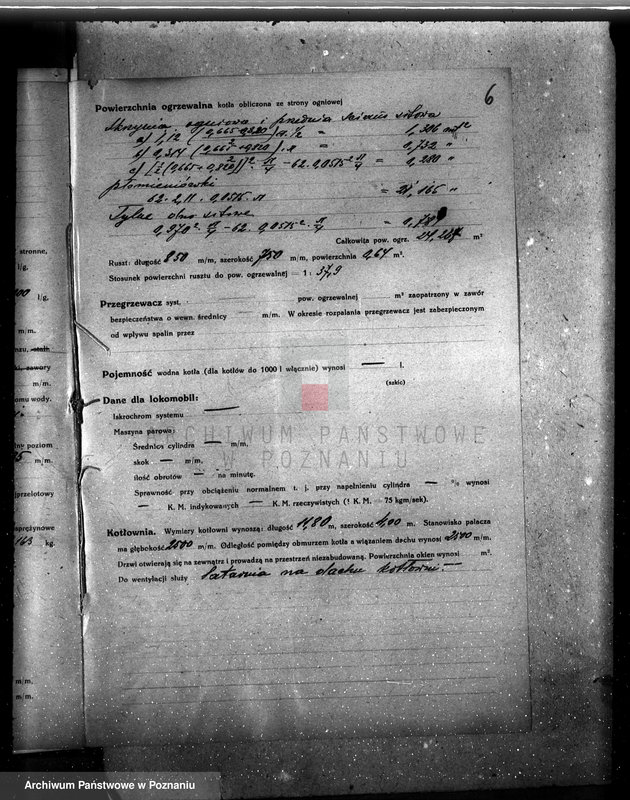 6
Powierzchnia ogrzewalna kotła obliczona ze strony ogniowej
Skrzynia ogniowa i przednia ściana sitowa
a) 1,12 = 1,386 m²
b) 0,314 = 0,732 "
c) - 62. 0,0515² = 0,280 "
płomieniówki
62. 2,11. 0,0515. π = 21,165 "
Tylne dno sitowe
0,970² - 62. 0,0515² =
Całkowita pow. ogrz. m²
Ruszt: długość 850 m/m, szerokość 750 m/m, powierzchnia 0,64 m².
Stosunek powierzchni rusztu do pow. ogrzewalnej = 1 : 37,9
Przegrzewacz syst. pow. ogrzewalnej m² zaopatrzony w zawór
bezpieczeństwa o wewn. średnicy — m/m. W okresie rozpalania przegrzewacz jest zabezpieczonym
od wpływu spalin przez
Pojemność wodna kotła (dla kotłów do 1000 l włącznie) wynosi — l.
(szkic)
Dane dla lokomobil:
Iskrochron systemu —
Maszyna parowa:
Średnica cylindra — m/m,
skok — m/m,
ilość obrotów — na minutę.
Sprawność przy obciążeniu normalnem t. j. przy napełnieniu cylindra — % wynosi
— K. M. indykowanych — K. M. rzeczywistych (1 K. M. = 75 kgm/sek).
Kotłownia. Wymiary kotłowni wynoszą: długość 11,80 m, szerokość 4,00 m. Stanowisko palacza
ma głębokość 2500 m/m. Odległość pomiędzy obmurzem kotła a wiązaniem dachu wynosi 2500 m/m.
Drzwi otwierają się na zewnątrz i prowadzą na przestrzeń niezabudowaną. Powierzchnia okien wynosi m².
Do wentylacji służy latarnia na dachu kotłowni. —
stronne,
l/g.
l/g,
m/m.
zawory
m/m.
wody.
poziom
m/m.
przelotowy
sprężynowe
163 kg.
m/m.
m/m.
ARCHIWUM PAŃSTWOWE
W POZNANIU
Archiwum Państwowe w Poznaniu